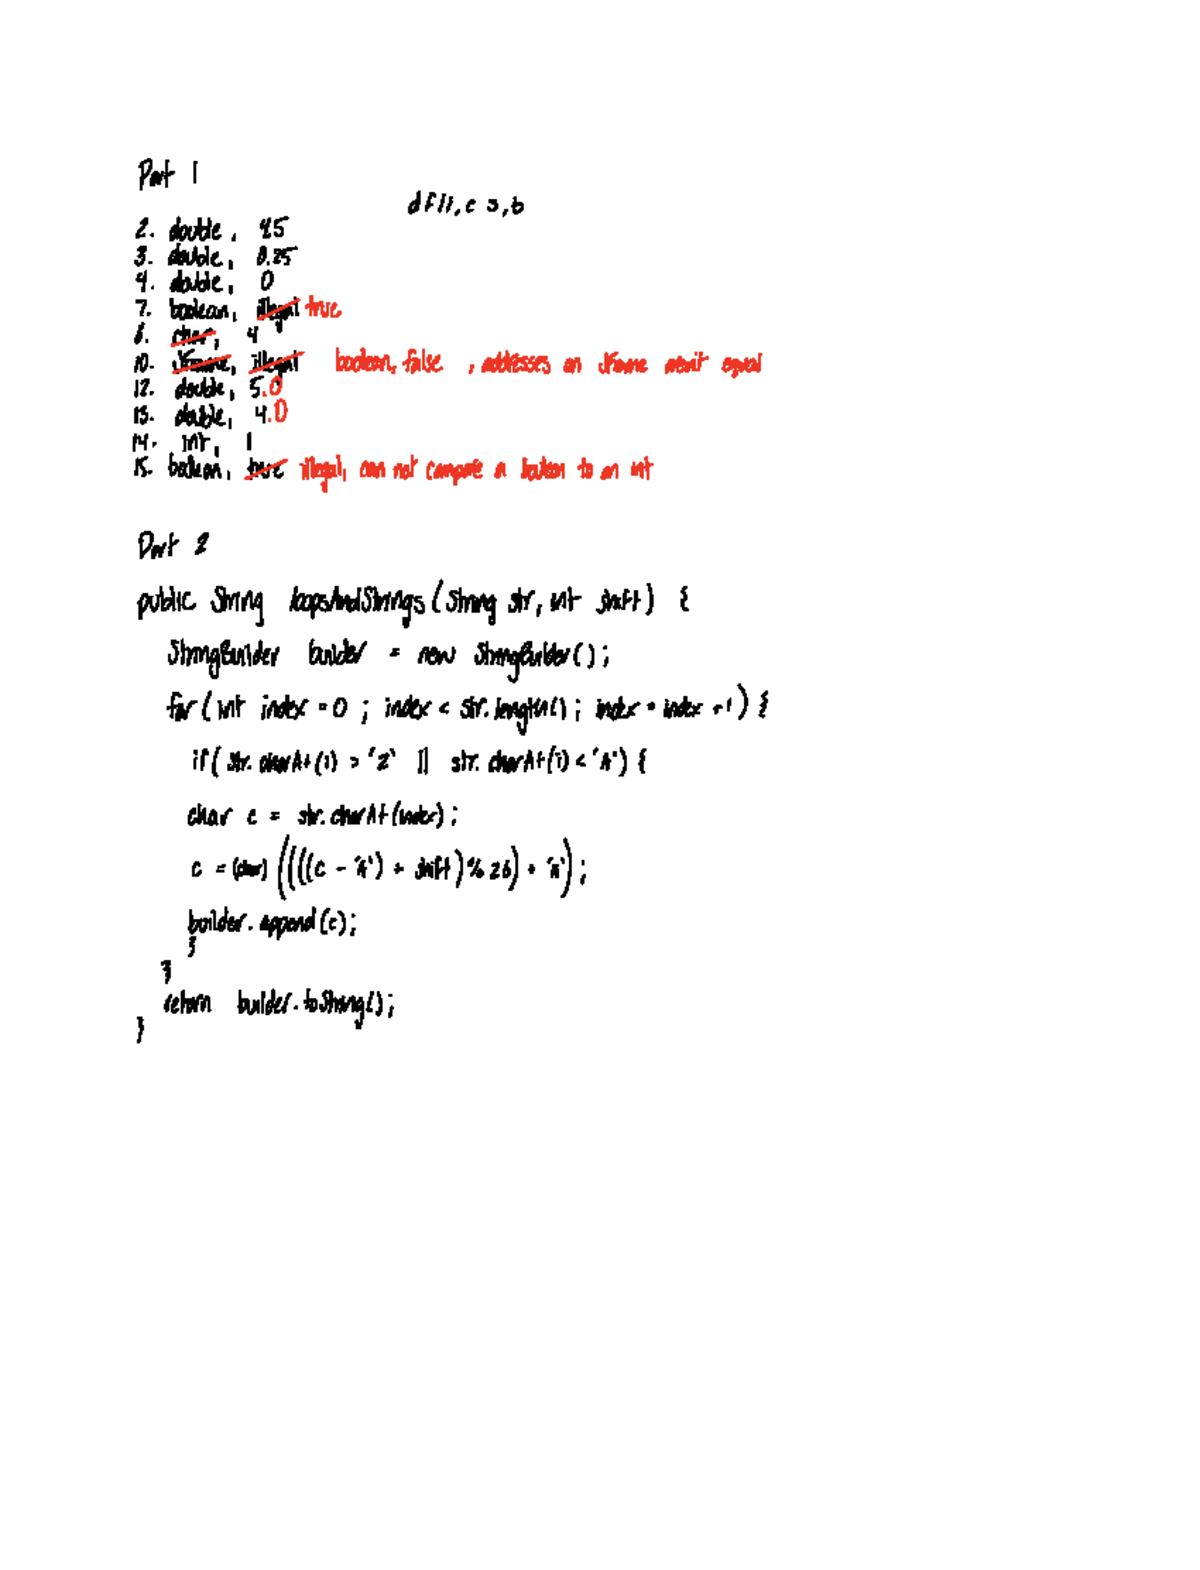 Part 1
dfil, c s, b
2. double, 4.5
3. double, 0.25
4. double, 0
7. boolean, illegal true
8. char, 4
10. JFrame, illegal boolean, false , addresses on JFrame aren't equal
12. double, 5.0
13. double, 4.0
14. int, 1
15. boolean, true illegal, can not compare a boolean to an int
Part 2
public String loopsAndStrings (String str, int shift) {
StringBuilder builder = new StringBuilder();
for (int index = 0 ; index < str.length(); index = index +1) {
if( str.charAt(i) > 'Z' || str.charAt(i) < 'A') {
char c = str.charAt(index);
c = (char) ((((c - 'A') + shift) % 26) + 'A');
builder.append(c);
}
}
return builder.toString();
}